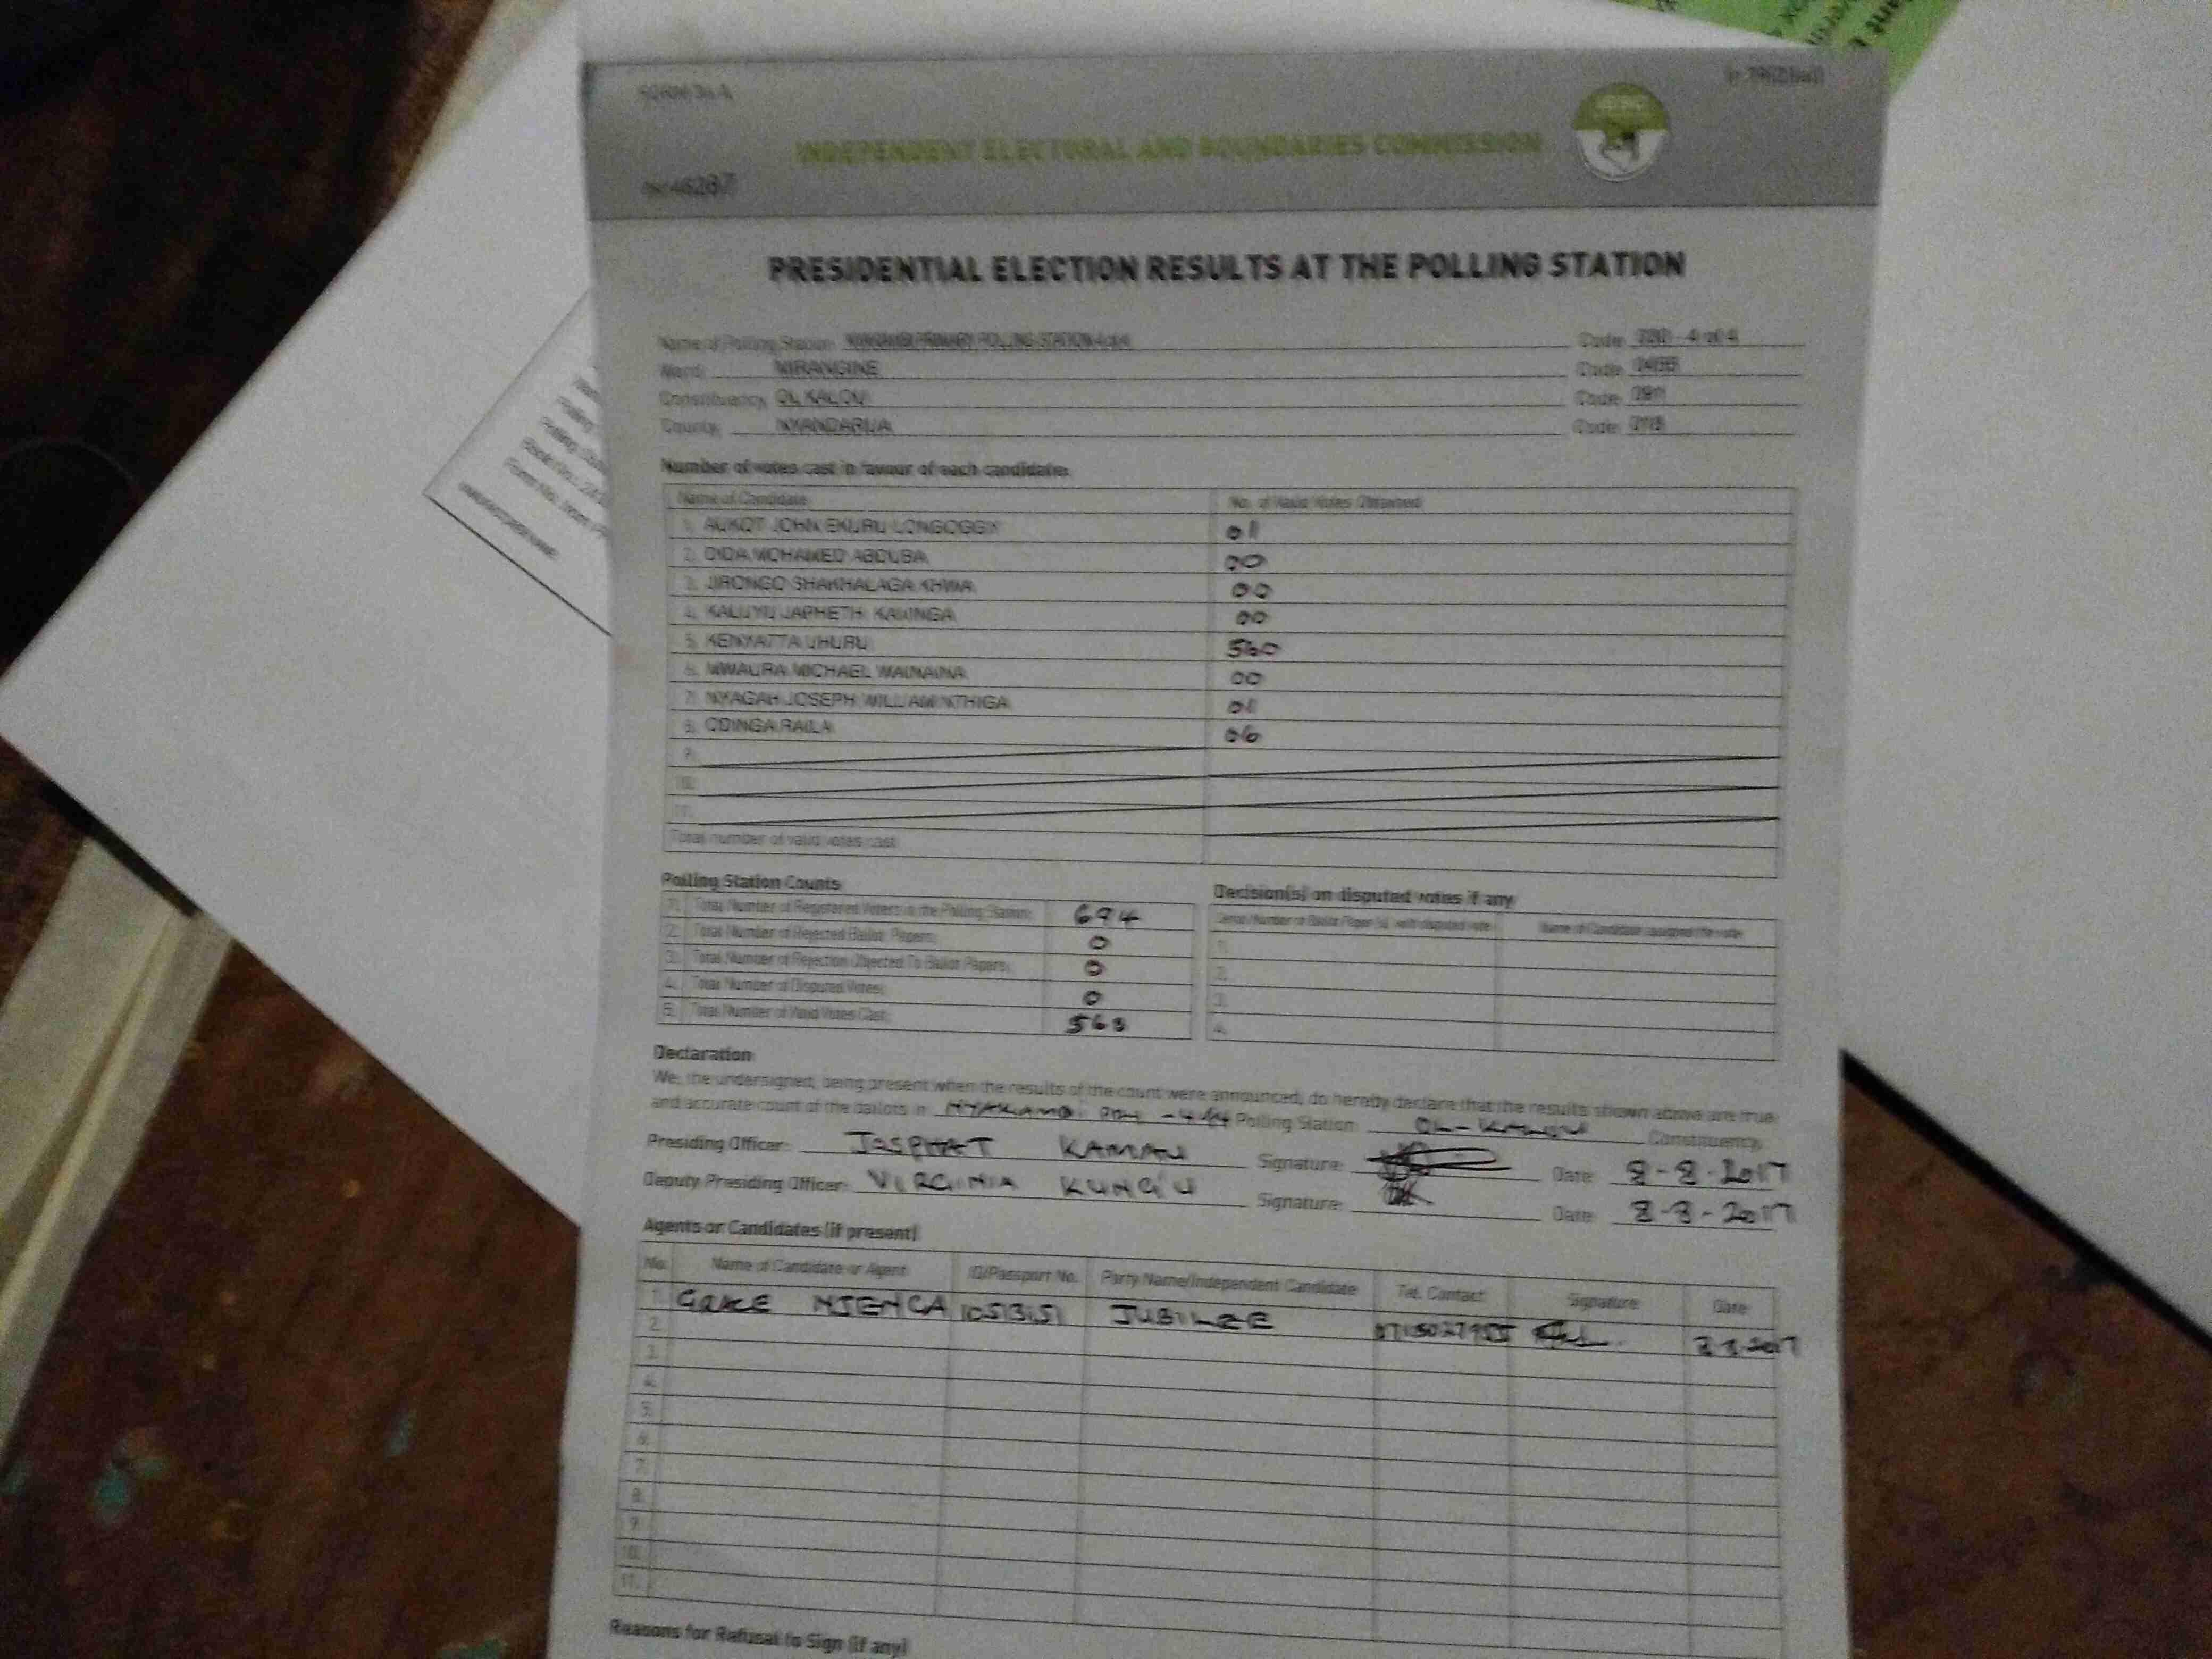 FORM 34 A
INDEPENDENT ELECTORAL AND BOUNDARIES COMMISSION
PRESIDENTIAL ELECTION RESULTS AT THE POLLING STATION
Name of Polling Station PRIMARY POLLING STATION 4 of 4 Code - 4 of 4
Ward: MIRANGINE Code
Constituency OL KALOU Code 091
County NYANDARUA Code 018
Number of votes cast in favour of each candidate:
Name of Candidate No. of Valid Votes Obtained
1. AUKOT JOHN EKURU LONGOGGY 01
2. DIDA MOHAMED ABDUBA 00
3. JIRONGO SHAKHALAGA KHWA 00
4. KALUYU JAPHETH KAVINGA 00
5. KENYATTA UHURU 560
6. MWAURA MICHAEL WAINAINA 00
7. NYAGAH JOSEPH WILLIAM NTHIGA 01
8. ODINGA RAILA 06
9.
10.
11.
Total number of valid votes cast
Polling Station Counts
1. Total Number of Registered Voters in the Polling Station: 694
2. Total Number of Rejected Ballot Papers: 0
3. Total Number of Rejection Objected To Ballot Papers: 0
4. Total Number of Disputed Votes: 0
5. Total Number of Valid Votes Cast:
Decision(s) on disputed votes if any
Serial Number of Ballot Paper (s) with disputed vote Name of Candidate assigned the vote
1.
2.
3.
4.
Declaration
We, the undersigned, being present when the results of the count were announced, do hereby declare that the results shown above are true
and accurate count of the ballots in - 4/4 Polling Station OL-KALOU Constituency
Presiding Officer: JOSPHAT KAMAU Signature: Date: 8-8-2017
Deputy Presiding Officer: VIRGINIA KUNG'U Signature: Date: 8-8-2017
Agents or Candidates (if present)
No. Name of Candidate or Agent ID/Passport No. Party Name/Independent Candidate Tel. Contact Signature Date
1. GRACE NJENGA JUBILEE
2.
3.
4.
5.
6.
7.
8.
9.
10.
11.
Reasons for Refusal to Sign (if any)